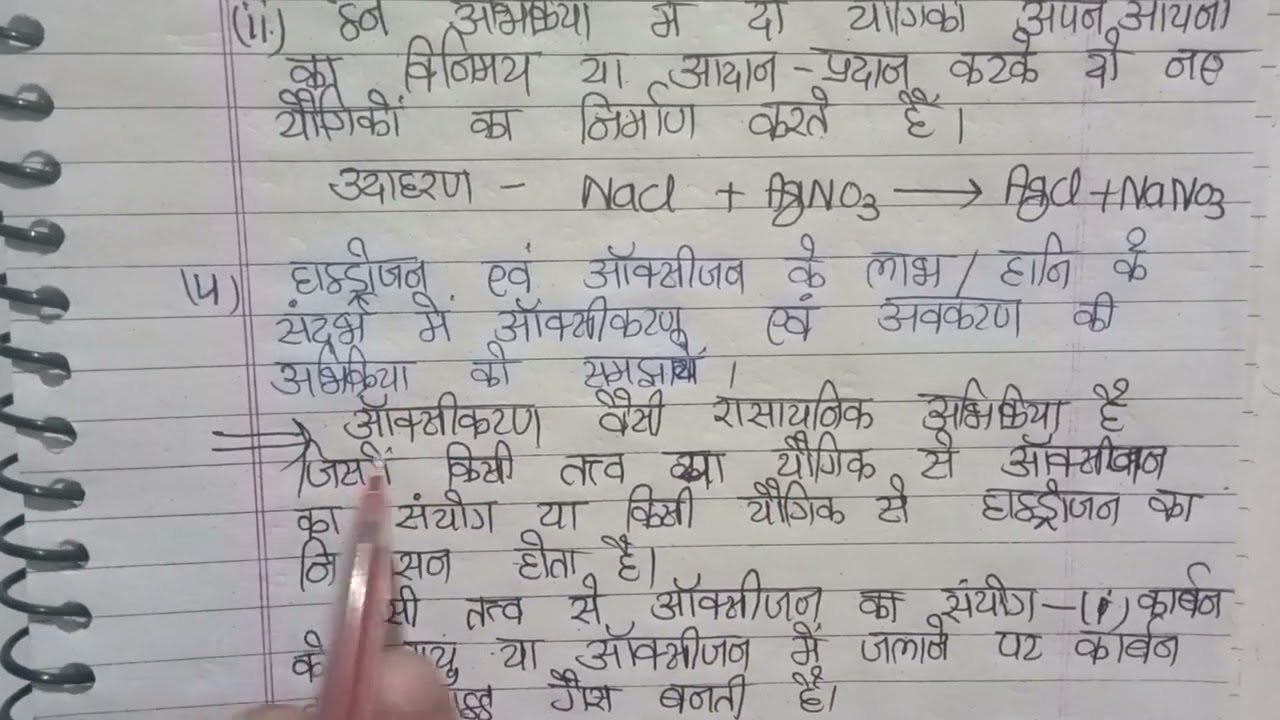 (ii.) इन अभिक्रिया में दो यौगिकों अपने आयनों
का विनिमय या आदान-प्रदान करके दो नए
यौगिकों का निर्माण करते हैं।
उदाहरण - NaCl + AgNO3 ⟶ AgCl + NaNO3
(५) हाइड्रोजन एवं ऑक्सीजन के लाभ / हानि के
संदर्भ में ऑक्सीकरण एवं अवकरण की
अभिक्रिया को समझायें ।
ऑक्सीकरण वैसी रासायनिक अभिक्रिया है
जिसमें किसी तत्त्व या यौगिक से ऑक्सीजन
का संयोग या किसी यौगिक से हाइड्रोजन का
होता है।
तत्त्व से ऑक्सीजन का संयोग-(i) कार्बन
या ऑक्सीजन में जलाने पर कार्बन
गैस बनती है।